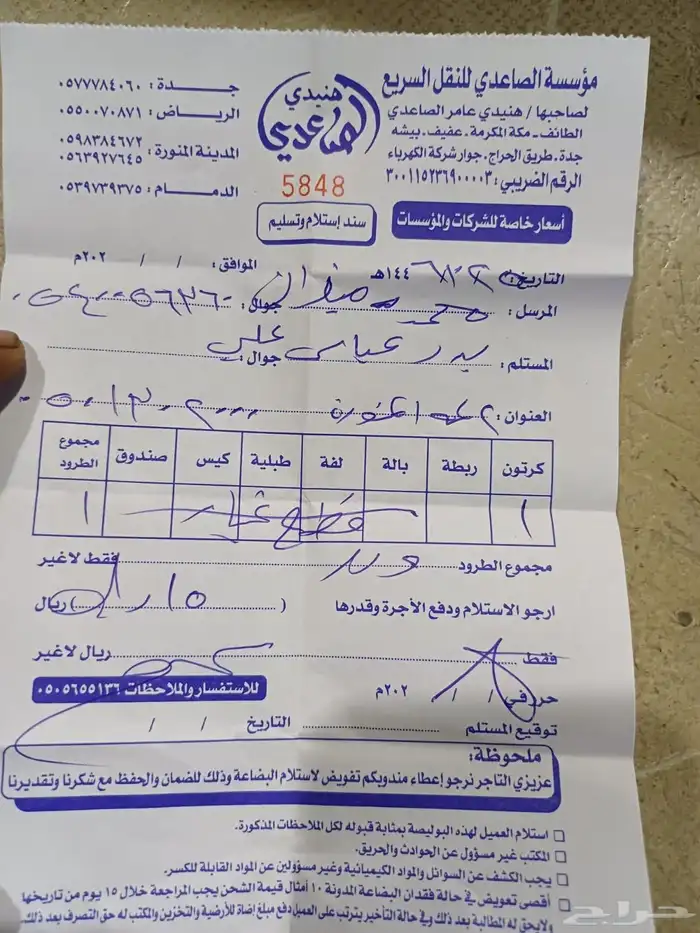 مؤسسة الصاعدي للنقل السريع
لصاحبها / هنيدي عامر الصاعدي
الطائف - مكة المكرمة - عفيف - بيشه
جدة - طريق الحراج - جوار شركة الكهرباء
الرقم الضريبي: ٣٠٠١١٥٢٣٦٩٠٠٠٠٣
هنيدي
الصاعدي
5848
جــدة : ٠٥٧٧٧٨٤٠٦٠
الرياض : ٠٥٥٠٠٧٠٨٧١
المدينة المنورة : ٠٥٩٨٣٨٤٦٧٢
٠٥٦٣٩٢٧٦٤٥
الدمام : ٠٥٣٩٧٣٩٣٧٥
أسعار خاصة للشركات والمؤسسات
سند إستلام وتسليم
التاريخ: ١٤٤هـ الموافق: / / ٢٠٢م
المرسل: محمد جوال:
المستلم: بدر عباس علي جوال:
العنوان:
كرتون ربطة بالة لفة طبلية كيس صندوق مجموع الطرود
١ قطع غيار ١
مجموع الطرود فقط لاغير
ارجو الاستلام ودفع الأجرة وقدرها ( ١٥ ) ريال
فقط ريال لاغير
حرر في / / ٢٠٢م
للاستفسار والملاحظات ٠٥٠٥٦٥٥١٣٦
توقيع المستلم التاريخ / /
ملحوظة:
عزيزي التاجر نرجو إعطاء مندوبكم تفويض لاستلام البضاعة وذلك للضمان والحفظ مع شكرنا وتقديرنا
استلام العميل لهذه البوليصة بمثابة قبوله لكل الملاحظات المذكورة.
المكتب غير مسؤول عن الحوادث والحريق.
يجب الكشف عن السوائل والمواد الكيميائية وغير مسؤولين عن المواد القابلة للكسر.
أقصى تعويض في حالة فقدان البضاعة المدونة ١٠ أمثال قيمة الشحن يجب المراجعة خلال ١٥ يوم من تاريخها
ولايحق له المطالبة بعد ذلك وفي حالة التأخير يترتب على العميل دفع مبلغ إضافة للأرضية والتخزين والمكتب له حق التصرف بعد ذلك.
حراج